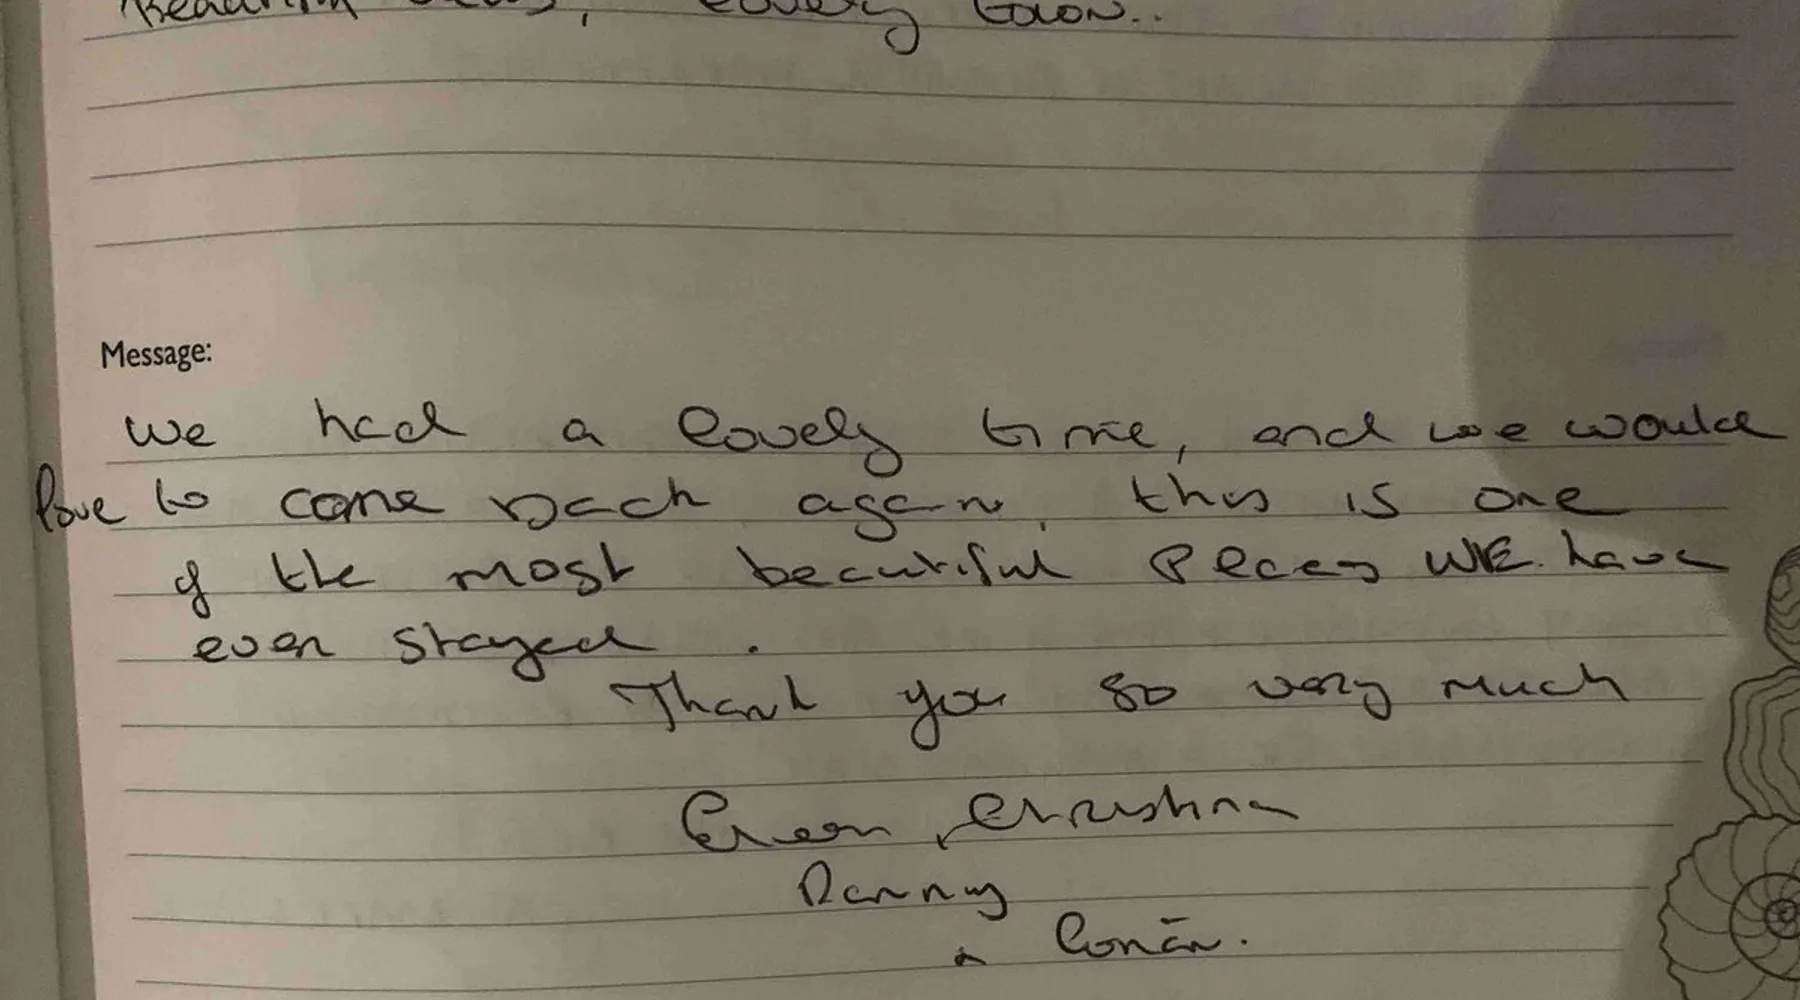 lovely town..
Message:
we had a lovely time, and we would
love to come back again, this is one
of the most beautiful places WE have
ever stayed.
Thank you so very much
, Christina
Danny
& Conán.